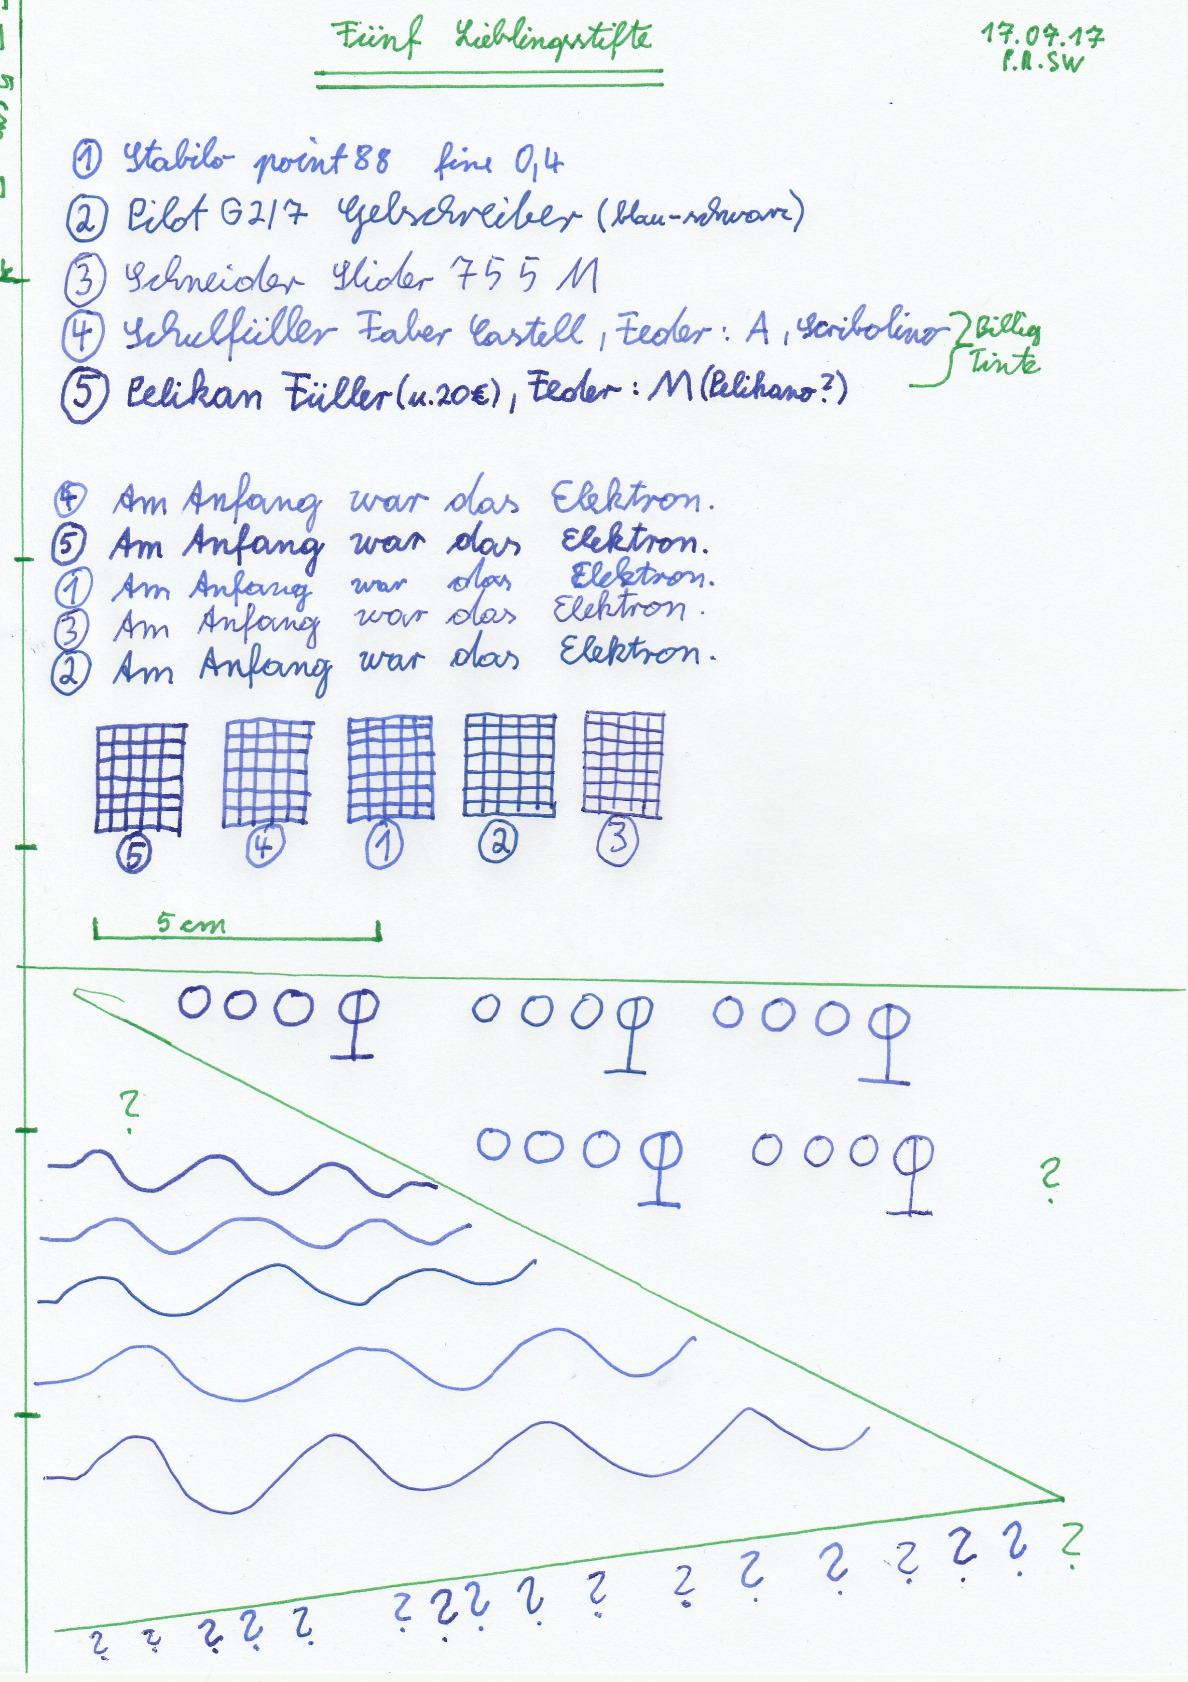 Fünf Lieblingsstifte
17.07.17
P.R.SW
5 cm
① Stabilo point 88 fine 0,4
② Pilot G2/7 Gelschreiber (blau-schwarz)
③ Schneider Slider 755 M
④ Schulfüller Faber Castell, Feder: A, Scribolino
Billig
Tinte
⑤ Pelikan Füller (u.20€), Feder: M (Pelikano?)
④ Am Anfang war das Elektron.
⑤ Am Anfang war das Elektron.
① Am Anfang war das Elektron.
③ Am Anfang war das Elektron.
② Am Anfang war das Elektron.
⑤ ④ ① ② ③
5 cm
?
?
? ? ? ? ? ? ? ? ? ? ? ? ? ? ? ? ?